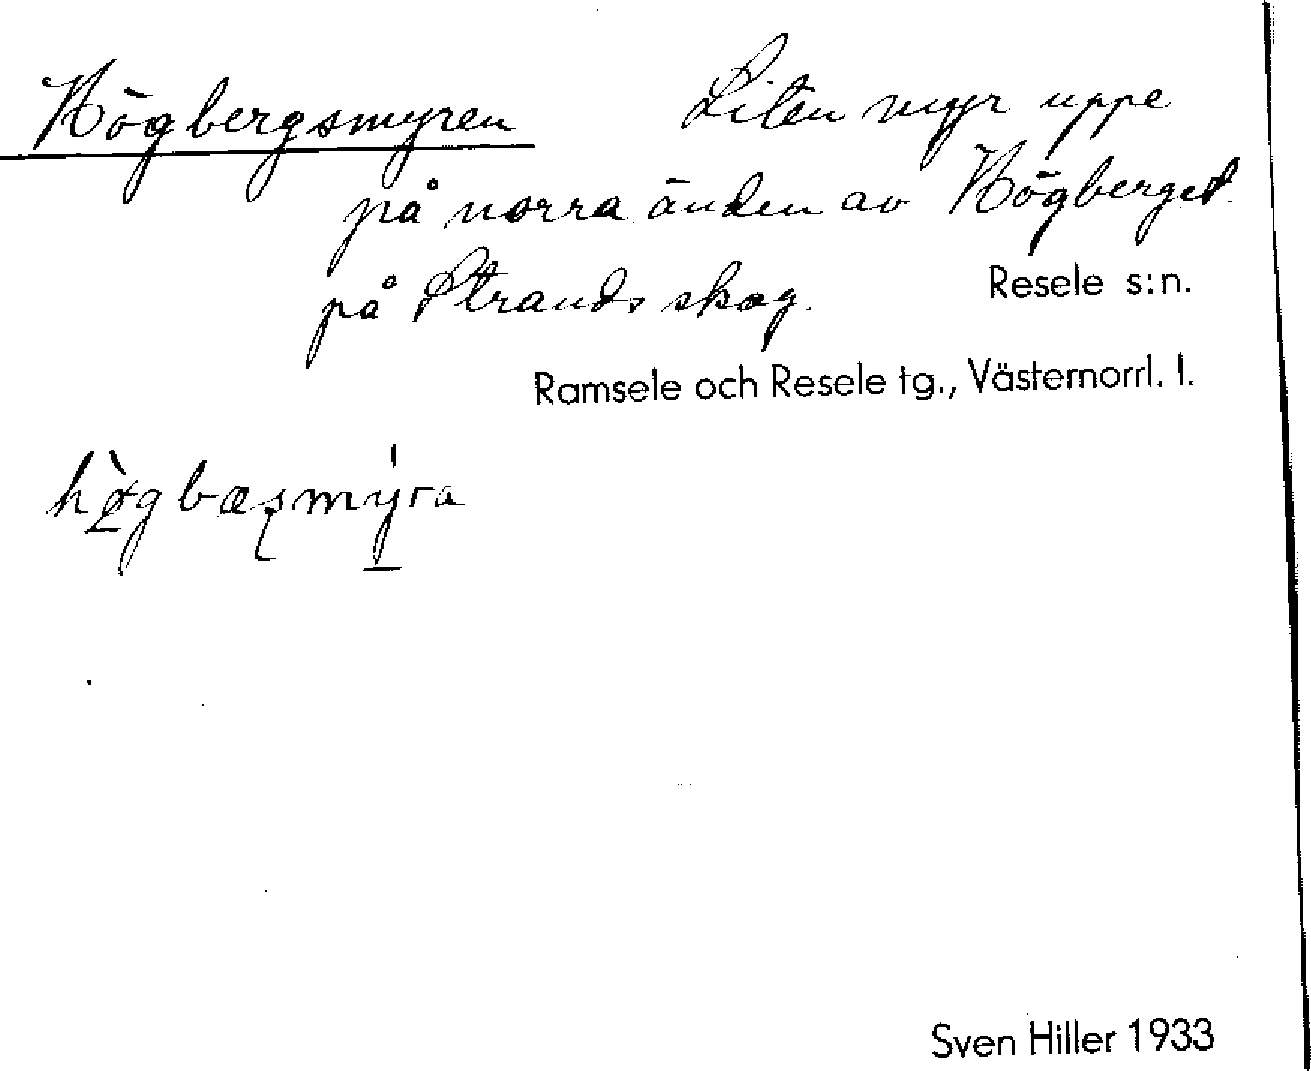 Högbergsmyren Liten myr uppe
på norra änden av Högberget
på Strands skog. Resele s:n.
Ramsele och Resele tg., Västernorrl. l.
hø̀gbæșmy̱̍ra
Sven Hiller 1933